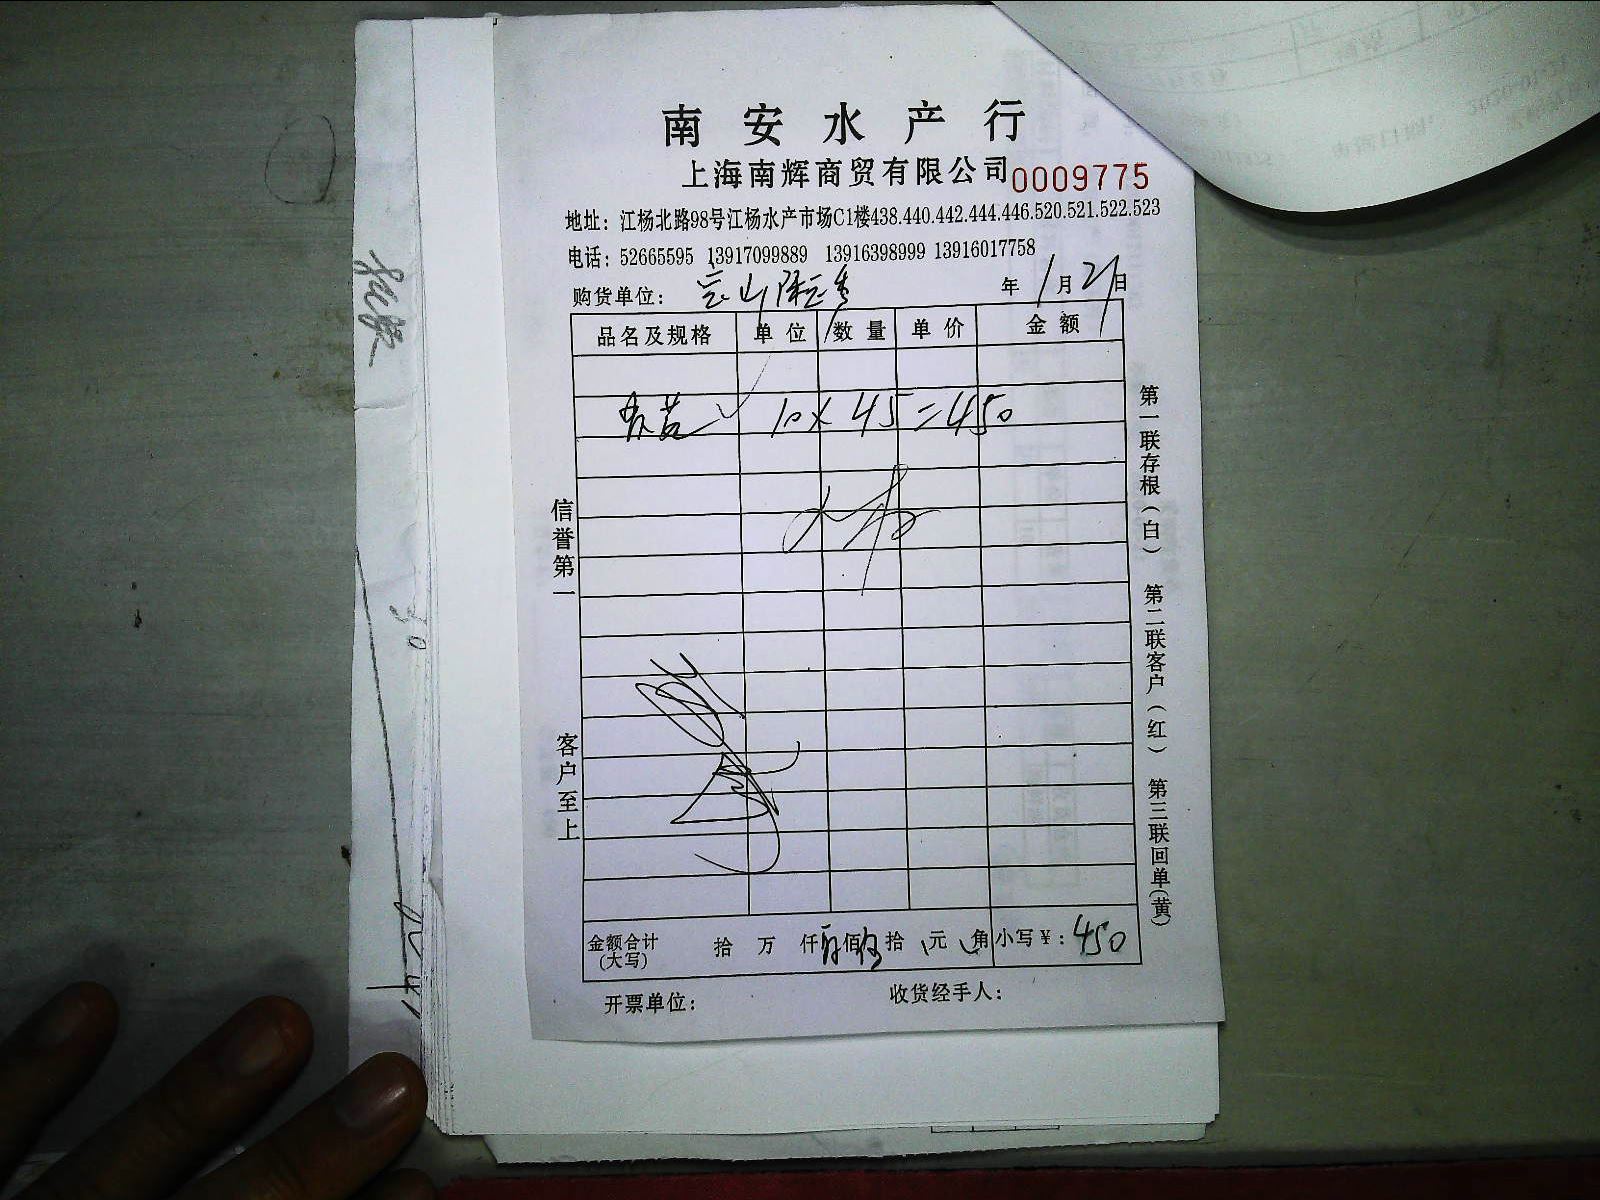 南安水产行
上海南辉商贸有限公司 0009775
地址：江杨北路98号江杨水产市场C1楼438.440.442.444.446.520.521.522.523
电话：52665595 13917099889 13916398999 13916017758
购货单位：宝山 年 1月21日
品名及规格 单位 数量 单价 金额
10 × 45 = 450
信誉第一
客户至上
第一联存根（白）
第二联客户（红）
第三联回单（黄）
金额合计（大写） 拾 万 仟 佰 拾 元 角 小写￥：450
开票单位： 收货经手人：
30